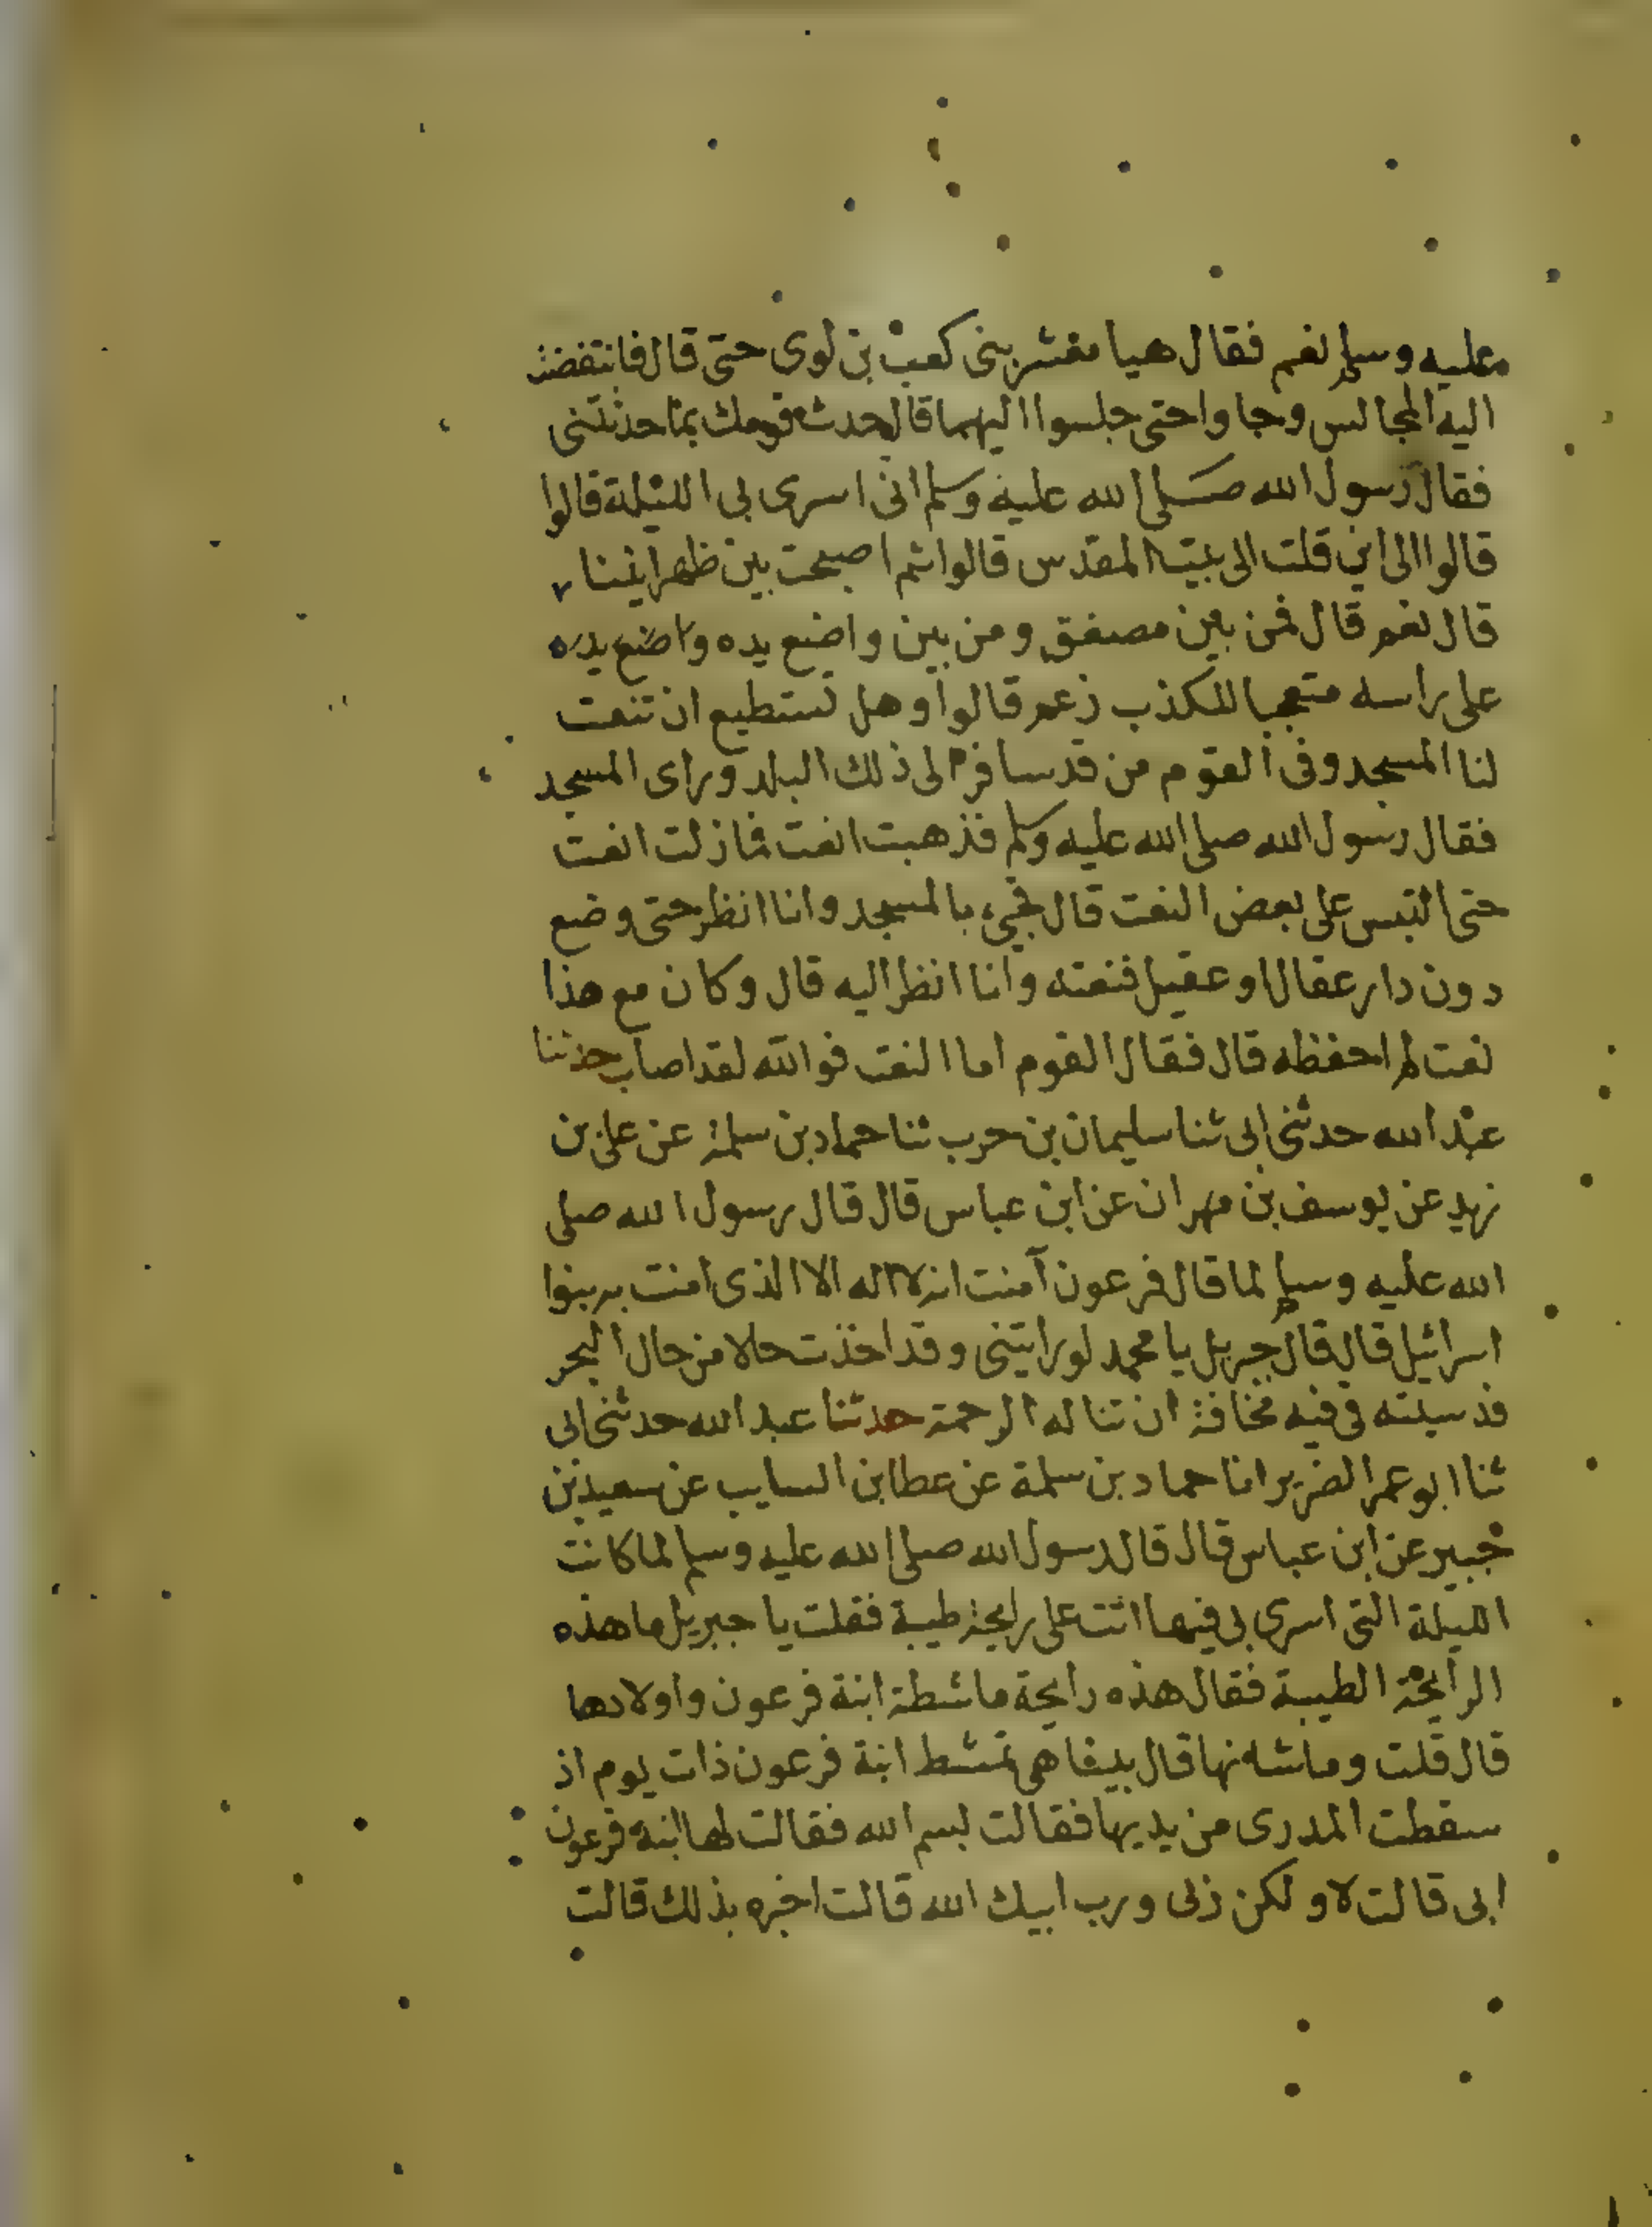 عليه وسلم نعم فقال هيا معشر بنى كعب بن لوى حتى قال فانتفضت
اليه المجالس وجاوا حتى جلسوا اليهما قال حدث قومك بما حدثتنى
فقال رسول الله صلى الله عليه وسلم انى اسرى بى الليلة قالوا
قالوا الى اين قلت الى بيت المقدس قالوا ثم اصبحت بين ظهرانينا
قال نعم قال فمن بين مصفق ومن بين واضع يده واضع يده
على راسه متعجبا للكذب زعم قالوا وهل تستطيع ان تنعت
لنا المسجد وفى القوم من قد سافر الى ذلك البلد وراى المسجد
فقال رسول الله صلى الله عليه وسلم فذهبت انعت فما زلت انعت
حتى التبس على بعض النعت قال فجىء بالمسجد وانا انظر حتى وضع
دون دار عقال او عقيل فنعته وانا انظر اليه قال وكان مع هذا
نعت لم احفظه قال فقال القوم اما النعت فوالله لقد اصاب حدثنا
عبد الله حدثنى ابى ثنا سليمان بن حرب ثنا حماد بن سلمة عن على بن
زيد عن يوسف بن مهران عن ابن عباس قال قال رسول الله صلى
الله عليه وسلم لما قال فرعون آمنت انه لا اله الا الذى امنت به بنوا
اسرائيل قال قال جبريل يا محمد لو رايتنى وقد اخذت حالا من حال البحر
فدسيته فى فيه مخافة ان تناله الرحمة حدثنا عبد الله حدثنى ابى
ثنا ابو عمر الضرير انا حماد بن سلمة عن عطا بن السايب عن سعيد بن
جبير عن ابن عباس قال قال رسول الله صلى الله عليه وسلم لما كانت
الليلة التى اسرى بى فيها اتت على رايحة طيبة فقلت يا جبريل ما هذه
الرايحة الطيبة فقال هذه رايحة ماشطة ابنة فرعون واولادها
قال قلت وما شانها قال بينا هى تمشط ابنة فرعون ذات يوم اذ
سقطت المدرى من يديها فقالت بسم الله فقالت لها ابنة فرعون
ابى قالت لا ولكن ربى ورب ابيك الله قالت اخبره بذلك قالت